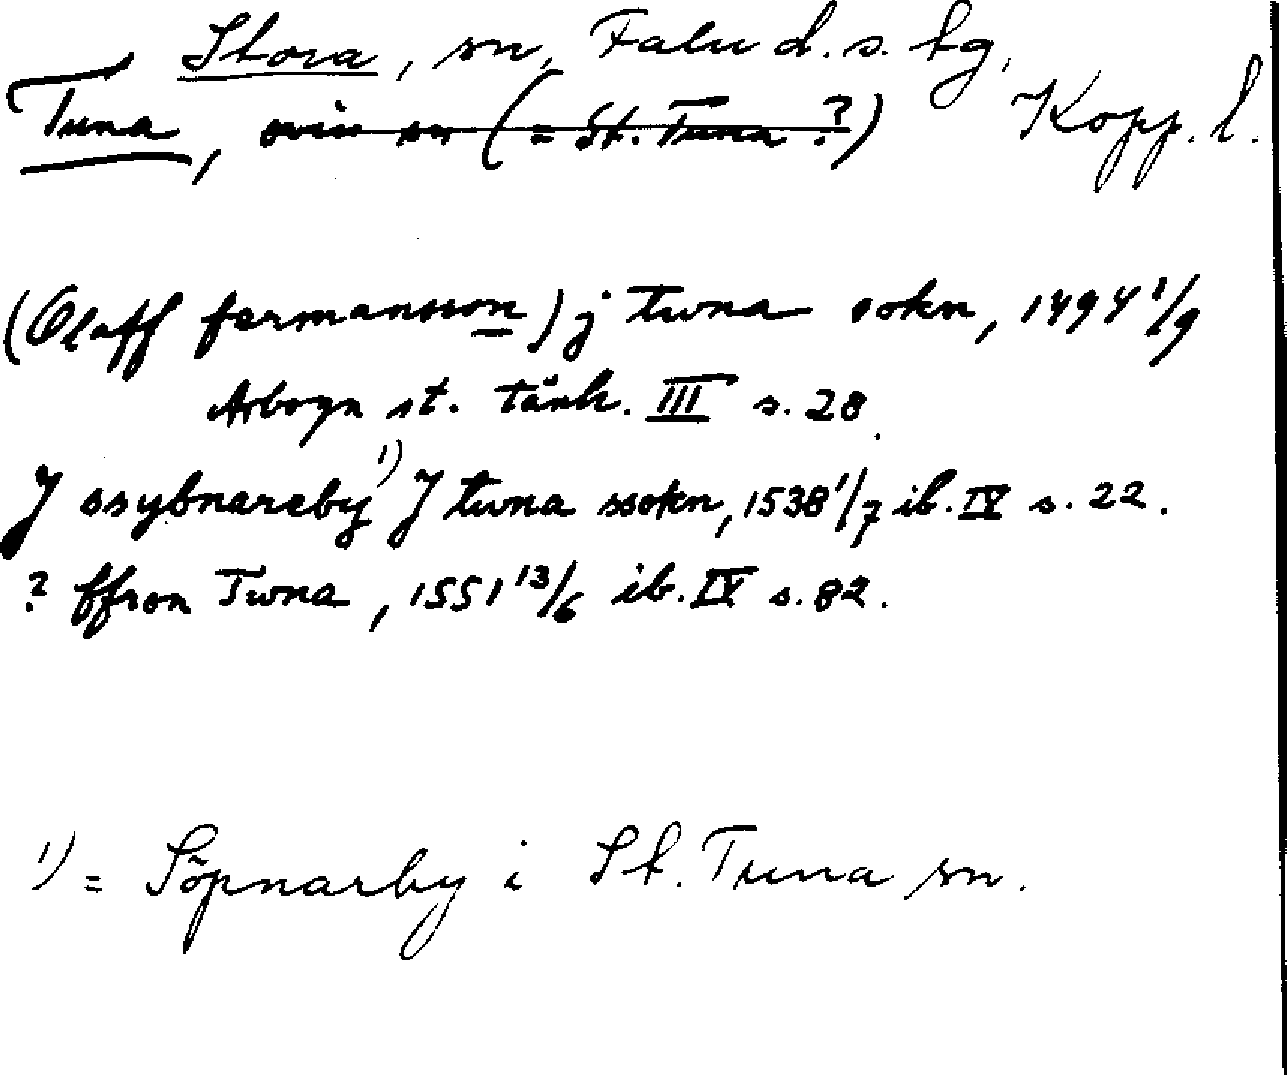 Stora, sn, Falu d. s. tg,
Tuna, sn (= St. Tuna?) Kopp. l.
(Olaff fermansson) j tuna sokn, 1494 1/9
Arboga st. tänk. III s. 28.
J ssybnareby 1) J tuna ssokn, 1538 1/7 ib. IV s. 22.
? ffron Tuna, 1551 13/6 ib. IV s. 82.
1) = Söpnarby i St. Tuna sn.